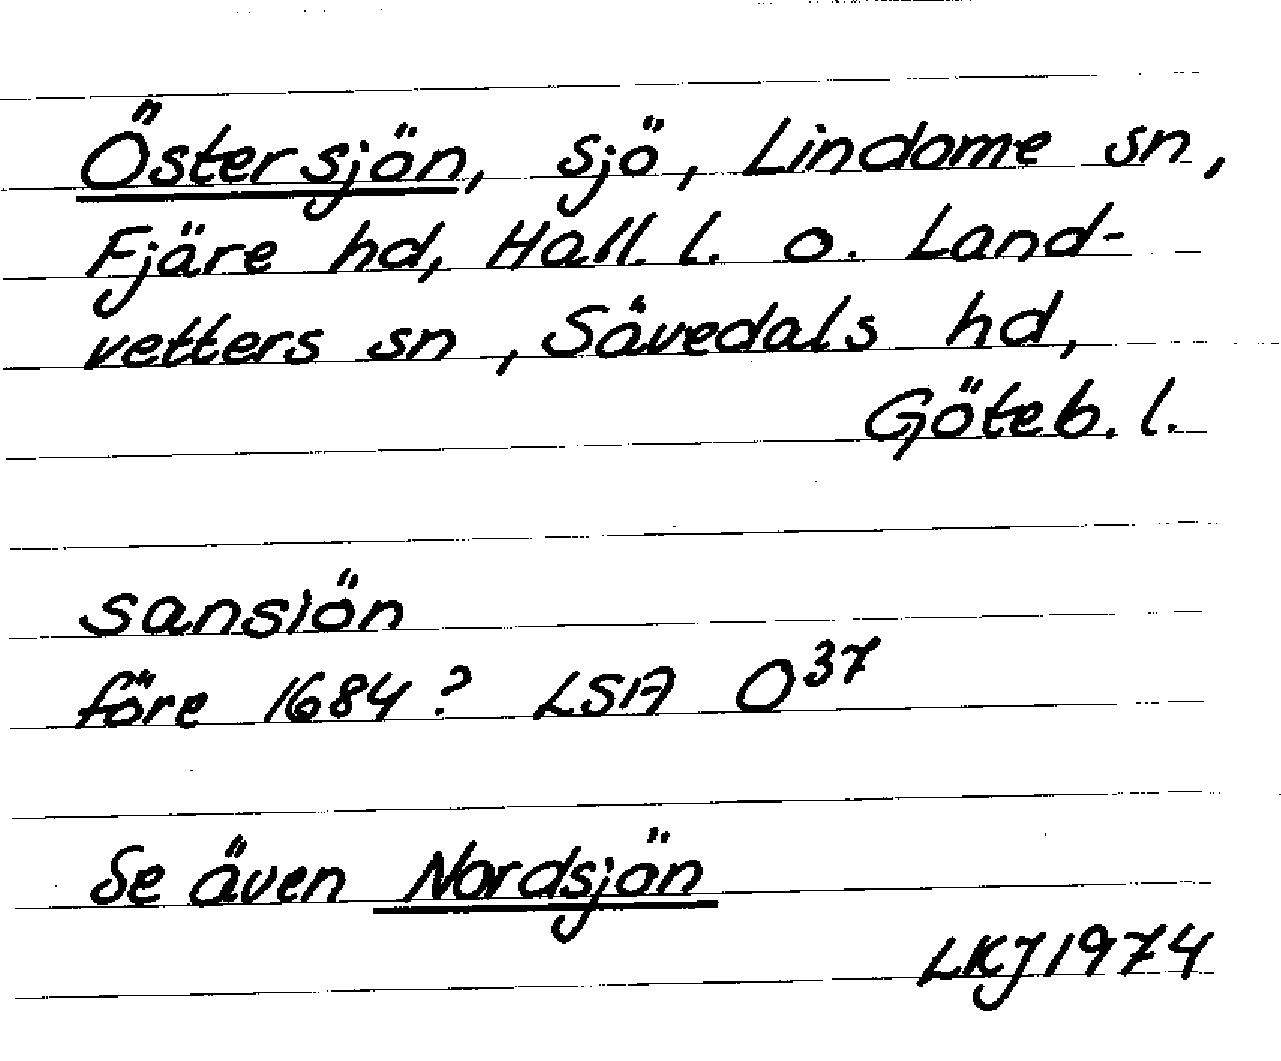 Östersjön, sjö, Lindome sn,
Fjäre hd, Hall. l. o. Land-
vetters sn, Sävedals hd,
Göteb. l.
sansiön
före 1684? LSA O37
Se även Nordsjön
LKJ 1974